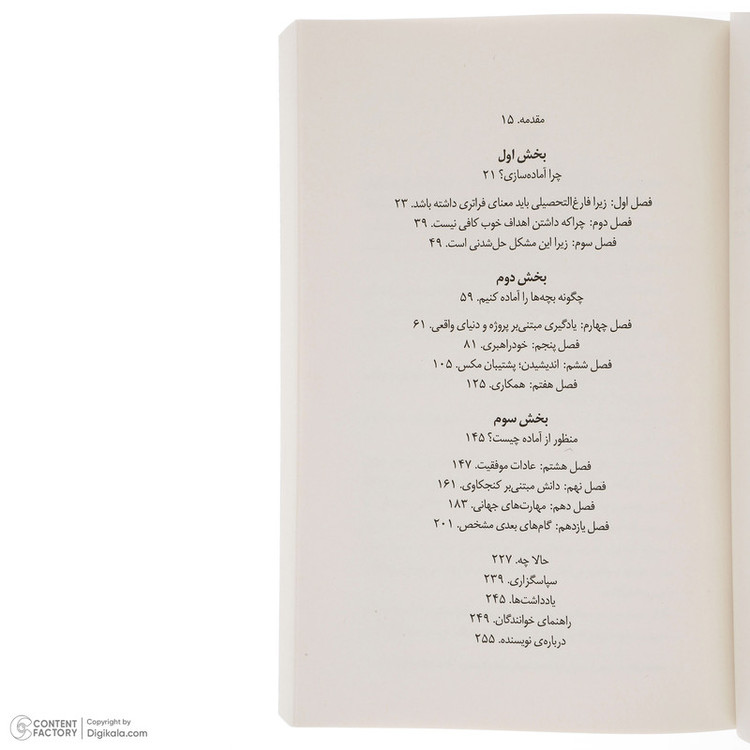 مقدمه. ۱۵
بخش اول
چرا آماده‌سازی؟ ۲۱
فصل اول: زیرا فارغ‌التحصیلی باید معنای فراتری داشته باشد. ۲۳
فصل دوم: چراکه داشتن اهداف خوب کافی نیست. ۳۹
فصل سوم: زیرا این مشکل حل‌شدنی است. ۴۹
بخش دوم
چگونه بچه‌ها را آماده کنیم. ۵۹
فصل چهارم: یادگیری مبتنی‌بر پروژه و دنیای واقعی. ۶۱
فصل پنجم: خودراهبری. ۸۱
فصل ششم: اندیشیدن؛ پشتیبان مکس. ۱۰۵
فصل هفتم: همکاری. ۱۲۵
بخش سوم
منظور از آماده چیست؟ ۱۴۵
فصل هشتم: عادات موفقیت. ۱۴۷
فصل نهم: دانش مبتنی‌بر کنجکاوی. ۱۶۱
فصل دهم: مهارت‌های جهانی. ۱۸۳
فصل یازدهم: گام‌های بعدی مشخص. ۲۰۱
حالا چه. ۲۲۷
سپاسگزاری. ۲۳۹
یادداشت‌ها. ۲۴۵
راهنمای خوانندگان. ۲۴۹
درباره‌ی نویسنده. ۲۵۵
CONTENT FACTORY
Copyright by
Digikala.com